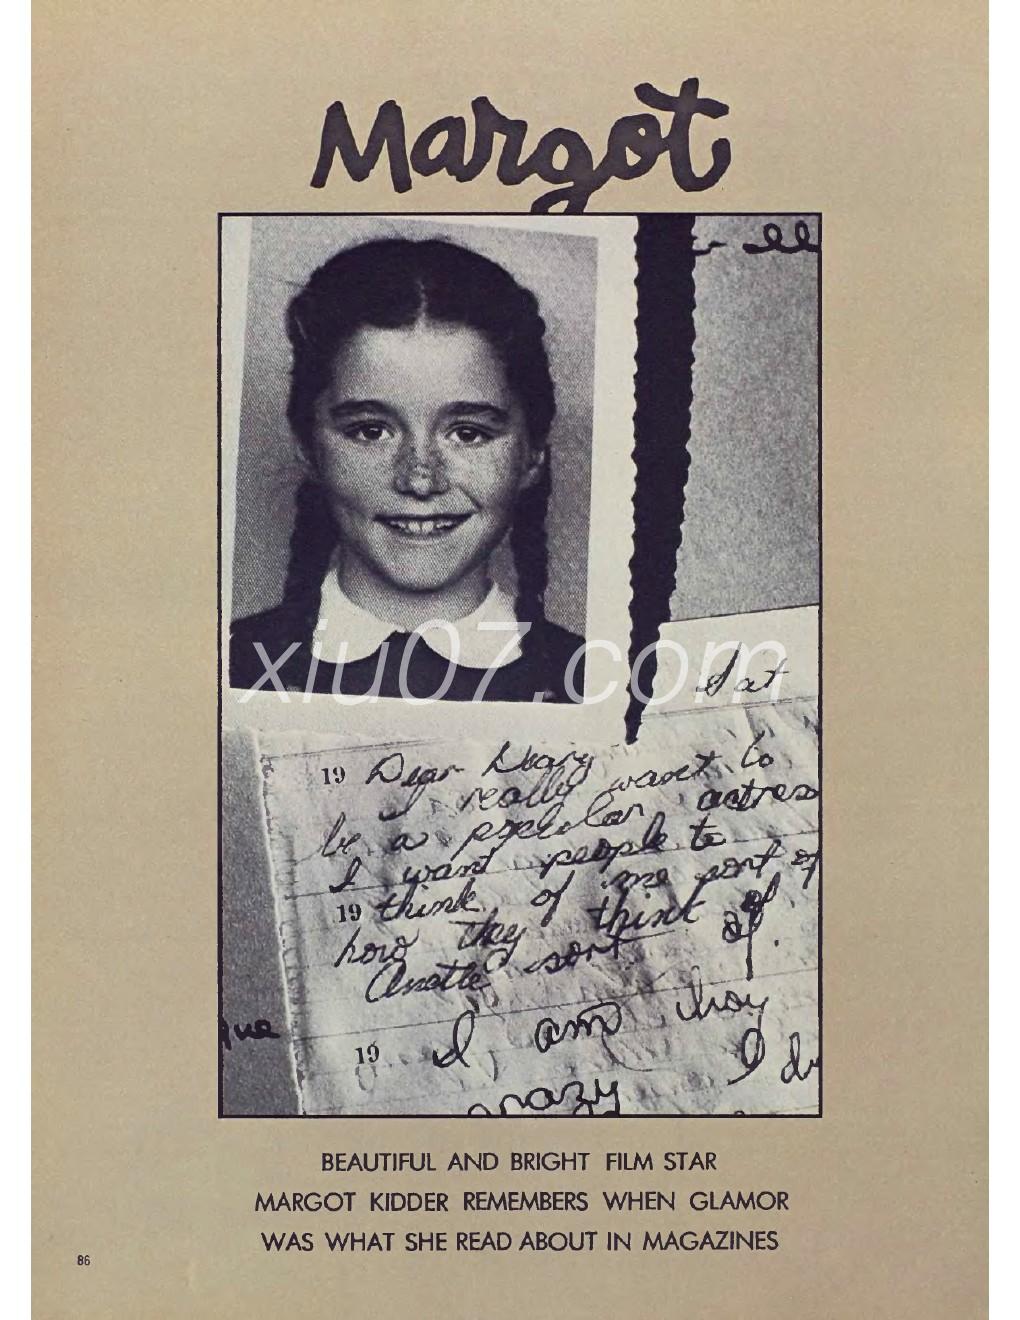 Margot
ell
Sat
19 Dear Diary
I really want to
be a popular actress
I want people to
19 think of me sort of
how they think of
Anette sort of.
19 I am
I
crazy
xiu07.com
BEAUTIFUL AND BRIGHT FILM STAR
MARGOT KIDDER REMEMBERS WHEN GLAMOR
WAS WHAT SHE READ ABOUT IN MAGAZINES
86